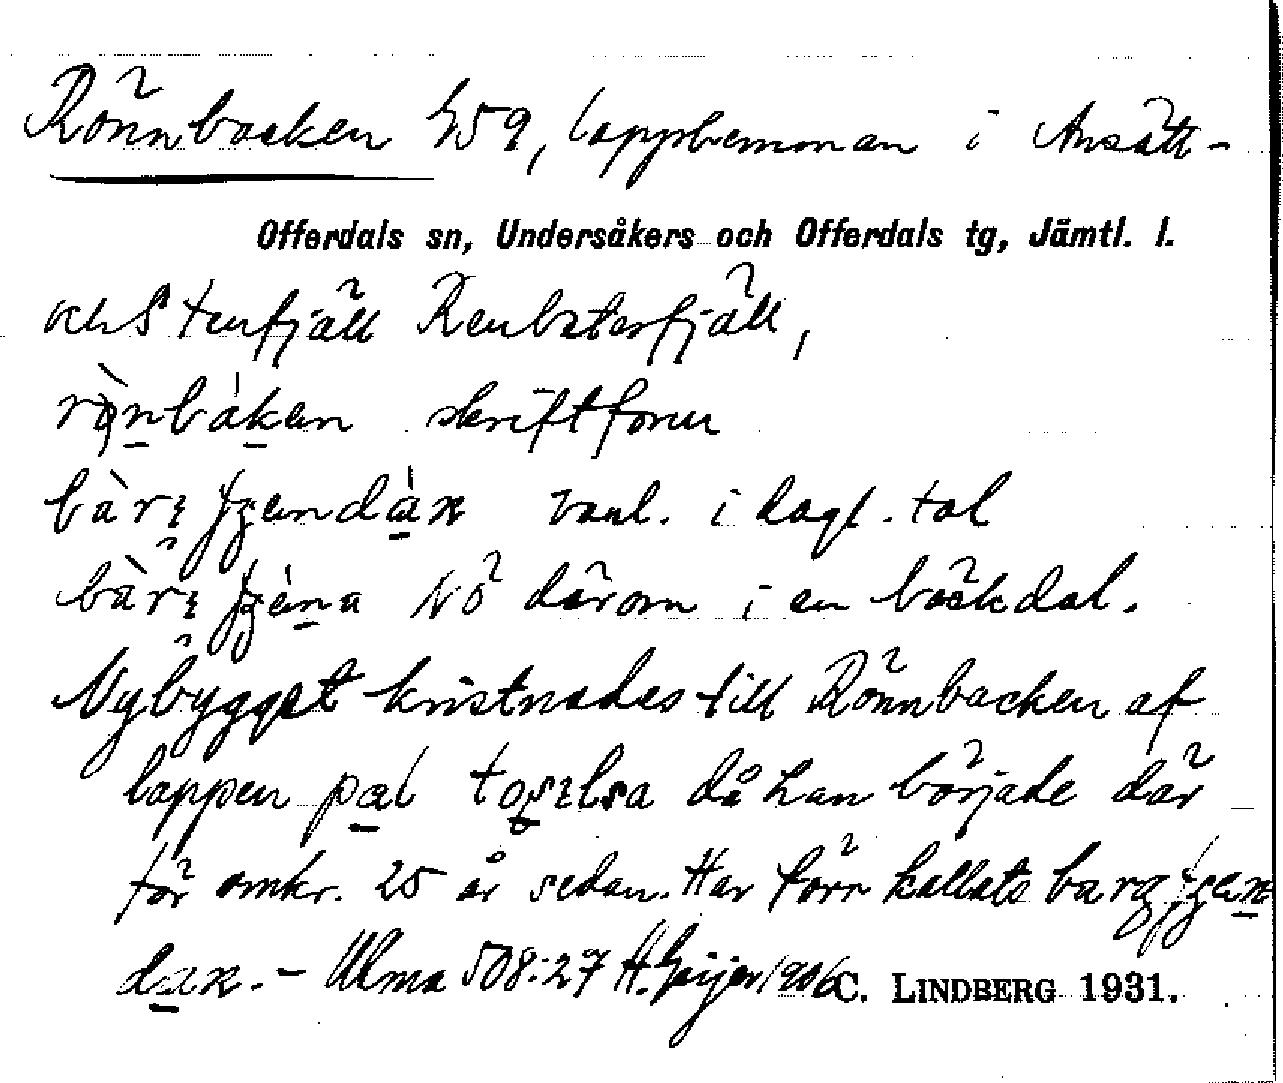 Rönnbacken 459, lapphemman i Ansätt-
Offerdals sn, Undersåkers och Offerdals tg, Jämtl. l.
och Stenfjäll Renbetesfjäll,
skriftform
vanl. i dagl. tal
NÖ därom i en bäckdal.
Nybygget kristnades till Rönnbacken af
lappen pal då han började där
för omkr. 25 år sedan. Har förr kallats
Ulma 508:27 H. Geijer 1906 C. LINDBERG 1931.